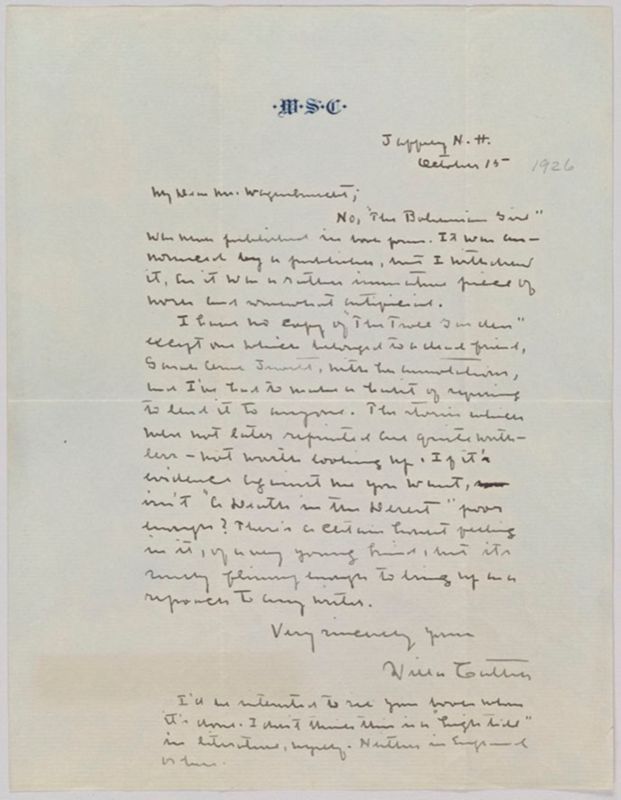 ·W·S·C·
Jaffrey N.H.
October 15 1926
My Dear Mr. Wagenknecht;
No, "The Bohemian Girl"
was never published in book form. It was an-
nounced by a publisher, but I withdrew
it, as it was a rather immature piece of
work and somewhat artificial.
I have no copy of "The Troll Garden"
except one which belonged to a dead friend,
Sarah Orne Jewett, with her annotations,
and I've had to make a habit of refusing
to lend it to anyone. The stories which
were not later reprinted are quite worth-
less - not worth looking up. If it's
evidence against me you want,
isn't "A Death in the Desert" poor
enough? There's a certain honest feeling
in it, of a very young kind, but it's
surely flimsy enough to bring up as a
reproach to any writer.
Very sincerely yours
Willa Cather
I'd be interested to see your book when
it's done. I don't think this is a "high tide"
in literature, myself. Neither in England
or here.